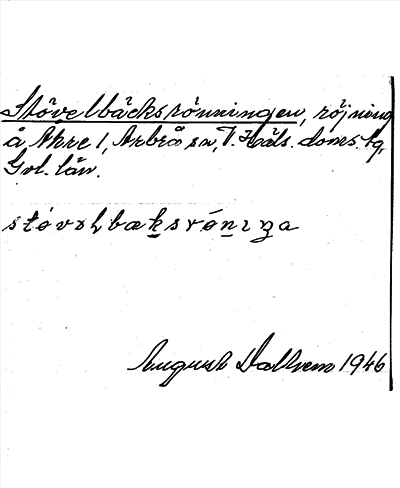 Stövelbäcksrönningen, röjning
å Åkre 1, Arbrå sn, V. Häls. doms. tg,
Gvl. län.
stövəlbæksrǿnıŋa
August Dalhem 1946